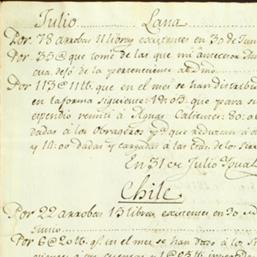 Julio Lana
Por 78 arrobas 11 libras existentes en 30 de Jun
Por 35@ que tomé de las que mi antecesor
cua, dejó de la perteneciente al diezmo
Por 113@ 11 lb. que en el mes se han distribu
en la forma siguiente: 19.03 que para su
expendio remití a Aguas Calientes: 80:
dadas a los obrageros para que reduzcan á
y 14:00 dadas y cargadas á las tres de los Sir
En 31 de Julio Igual
Chile
Por 22 arrobas 13 libras existentes en 30 de
Junio
Por 6@20 lb. que en el mes se han dado à los Sir